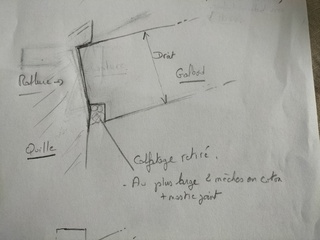 Droit
Galbord
Quille
Calfatage retiré.
- Au plus large 2 mèches en coton
+ mastic joint